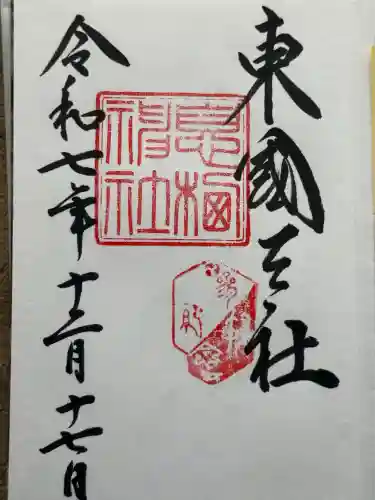 東國三社
息栖
神社
令和七年 十二月 十七日